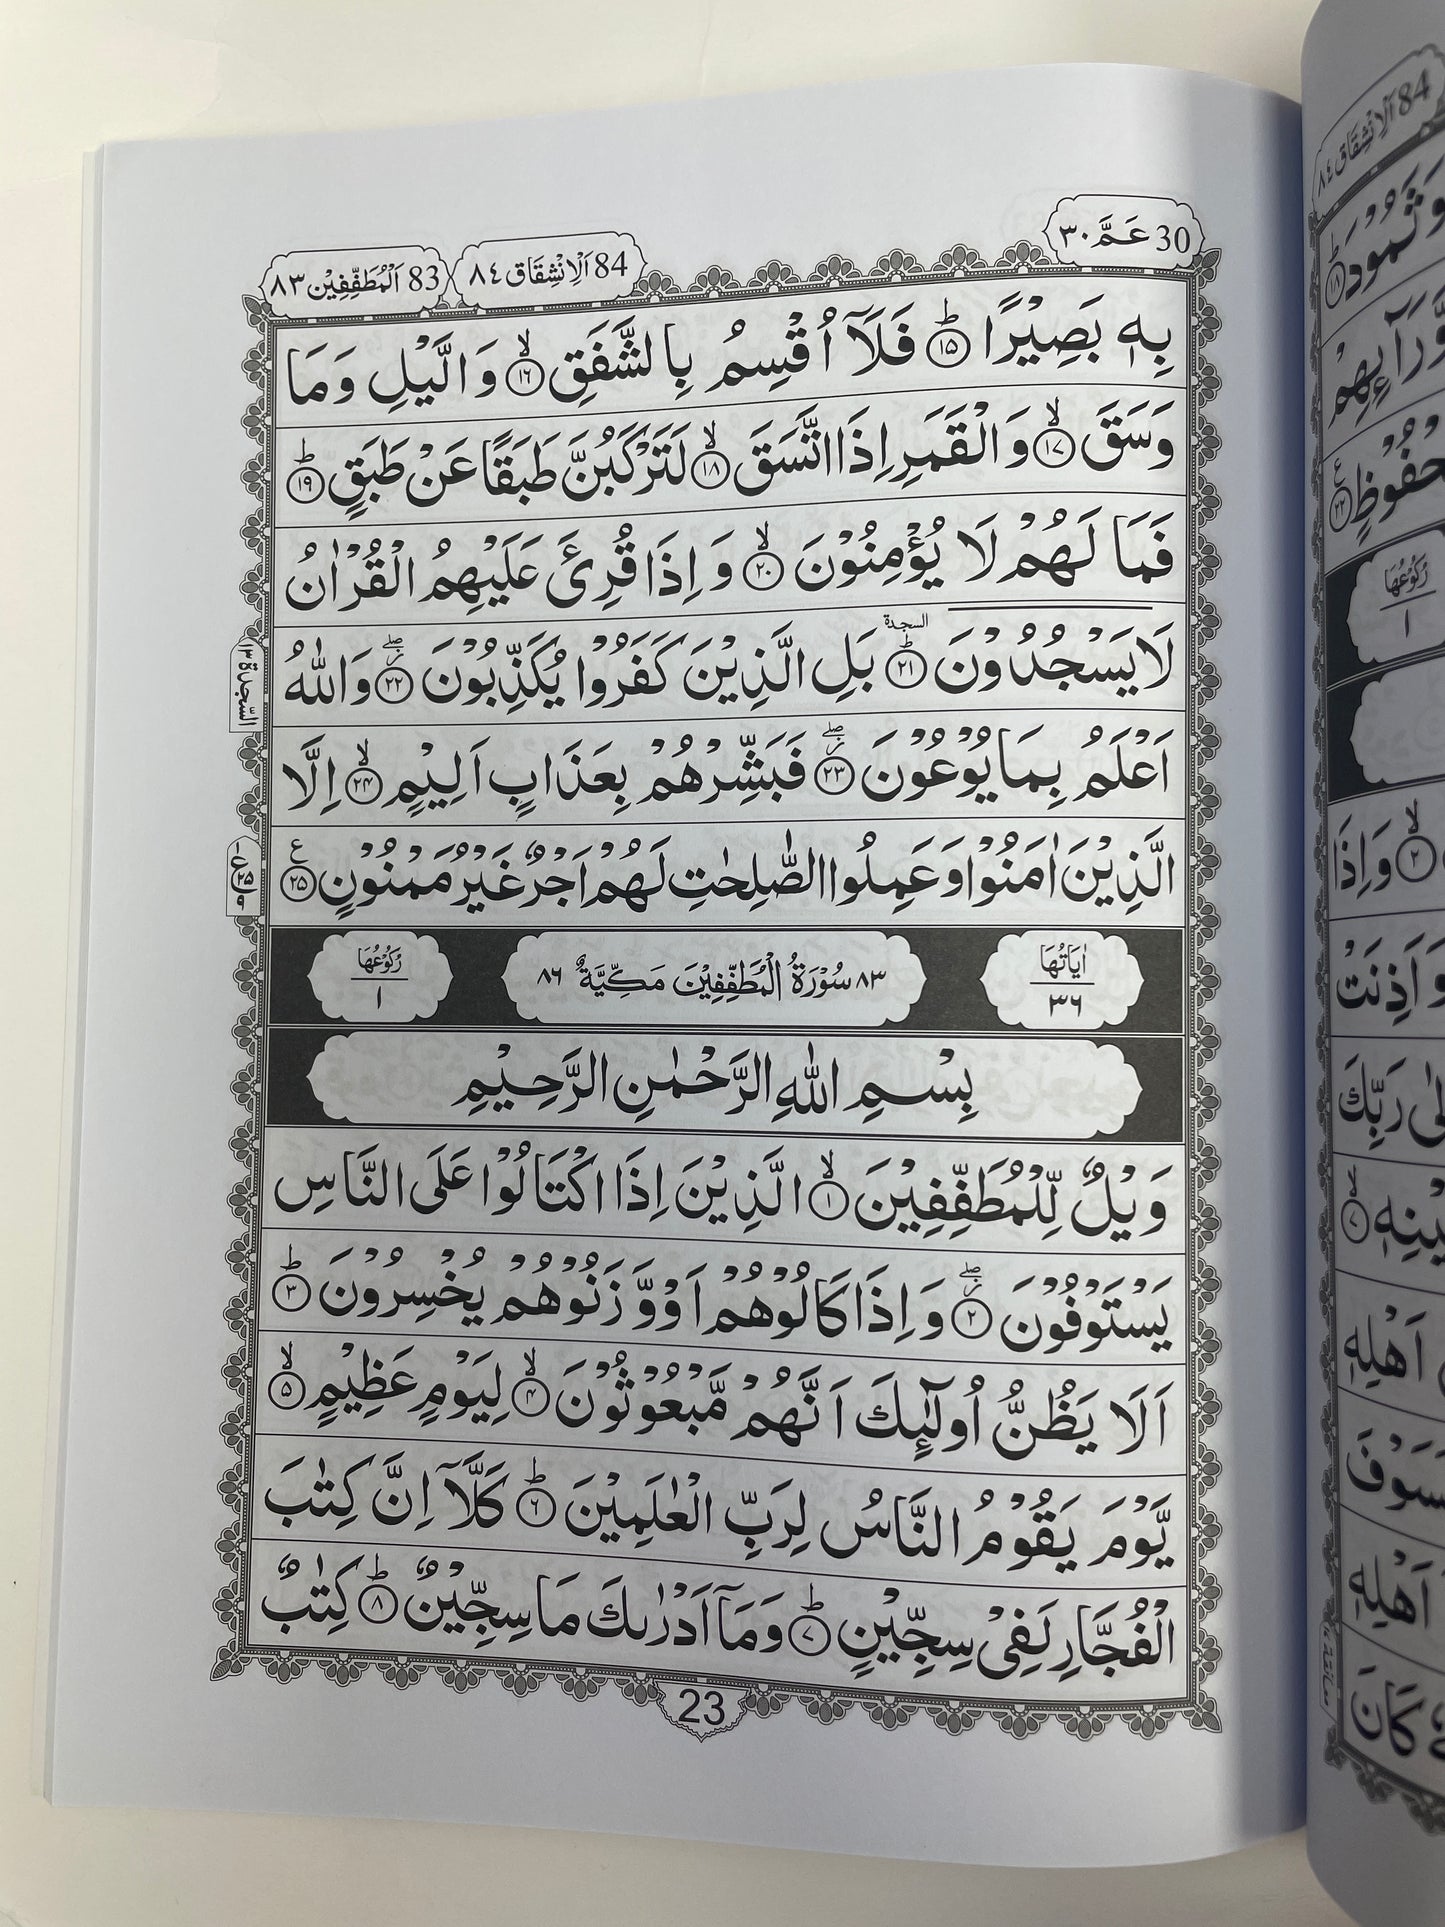 30 عَمَّ ٣٠
84 اَلْاِنْشِقَاق ٨٤
83 اَلْمُطَفِّفِيْن ٨٣
بِهٖ بَصِيْرًا ؕ﴿۱۵﴾ فَلَاۤ اُقْسِمُ بِالشَّفَقِ ۙ﴿۱۶﴾ وَالَّيْلِ وَمَا
وَسَقَ ۙ﴿۱۷﴾ وَالْقَمَرِ اِذَا اتَّسَقَ ۙ﴿۱۸﴾ لَتَرْكَبُنَّ طَبَقًا عَنْ طَبَقٍ ؕ﴿۱۹﴾
فَمَا لَهُمْ لَا يُؤْمِنُوْنَ ۙ﴿۲۰﴾ وَاِذَا قُرِئَ عَلَيْهِمُ الْقُرْاٰنُ
لَا يَسْجُدُوْنَ ؕ﴿۲۱﴾ السجدة بَلِ الَّذِيْنَ كَفَرُوْا يُكَذِّبُوْنَ ۖ﴿۲۲﴾ وَاللّٰهُ
السَّجدة ١٣
اَعْلَمُ بِمَا يُوْعُوْنَ ۖ﴿۲۳﴾ فَبَشِّرْهُمْ بِعَذَابٍ اَلِيْمٍ ۙ﴿۲۴﴾ اِلَّا
الَّذِيْنَ اٰمَنُوْا وَعَمِلُوا الصّٰلِحٰتِ لَهُمْ اَجْرٌ غَيْرُ مَمْنُوْنٍ ﴿۲۵﴾ ع
اٰيَاتُهَا ٣٦
٨٣ سُوْرَةُ الْمُطَفِّفِيْنَ مَكِّيَّةٌ ٨٦
رُكُوْعُهَا ١
بِسْمِ اللّٰهِ الرَّحْمٰنِ الرَّحِيْمِ
وَيْلٌ لِّلْمُطَفِّفِيْنَ ۙ﴿۱﴾ الَّذِيْنَ اِذَا اكْتَالُوْا عَلَى النَّاسِ
يَسْتَوْفُوْنَ ۖ﴿۲﴾ وَاِذَا كَالُوْهُمْ اَوْ وَّزَنُوْهُمْ يُخْسِرُوْنَ ؕ﴿۳﴾
اَلَا يَظُنُّ اُولٰٓئِكَ اَنَّهُمْ مَّبْعُوْثُوْنَ ۙ﴿۴﴾ لِيَوْمٍ عَظِيْمٍ ۙ﴿۵﴾
يَّوْمَ يَقُوْمُ النَّاسُ لِرَبِّ الْعٰلَمِيْنَ ؕ﴿۶﴾ كَلَّاۤ اِنَّ كِتٰبَ
الْفُجَّارِ لَفِيْ سِجِّيْنٍ ؕ﴿۷﴾ وَمَاۤ اَدْرٰىكَ مَا سِجِّيْنٌ ؕ﴿۸﴾ كِتٰبٌ
23
84 اَلْاِنْشِقَاق ٨٤
وَثَمُوْدَ ؕ﴿۱۸﴾
وَّرَآئِهِمْ
رُكُوْعُهَا ١
﴿۲﴾ وَاِذَا
وَاَذِنَتْ
رَبِّكَ
اَهْلِهٖ
اَهْلِهٖ
كَانَ